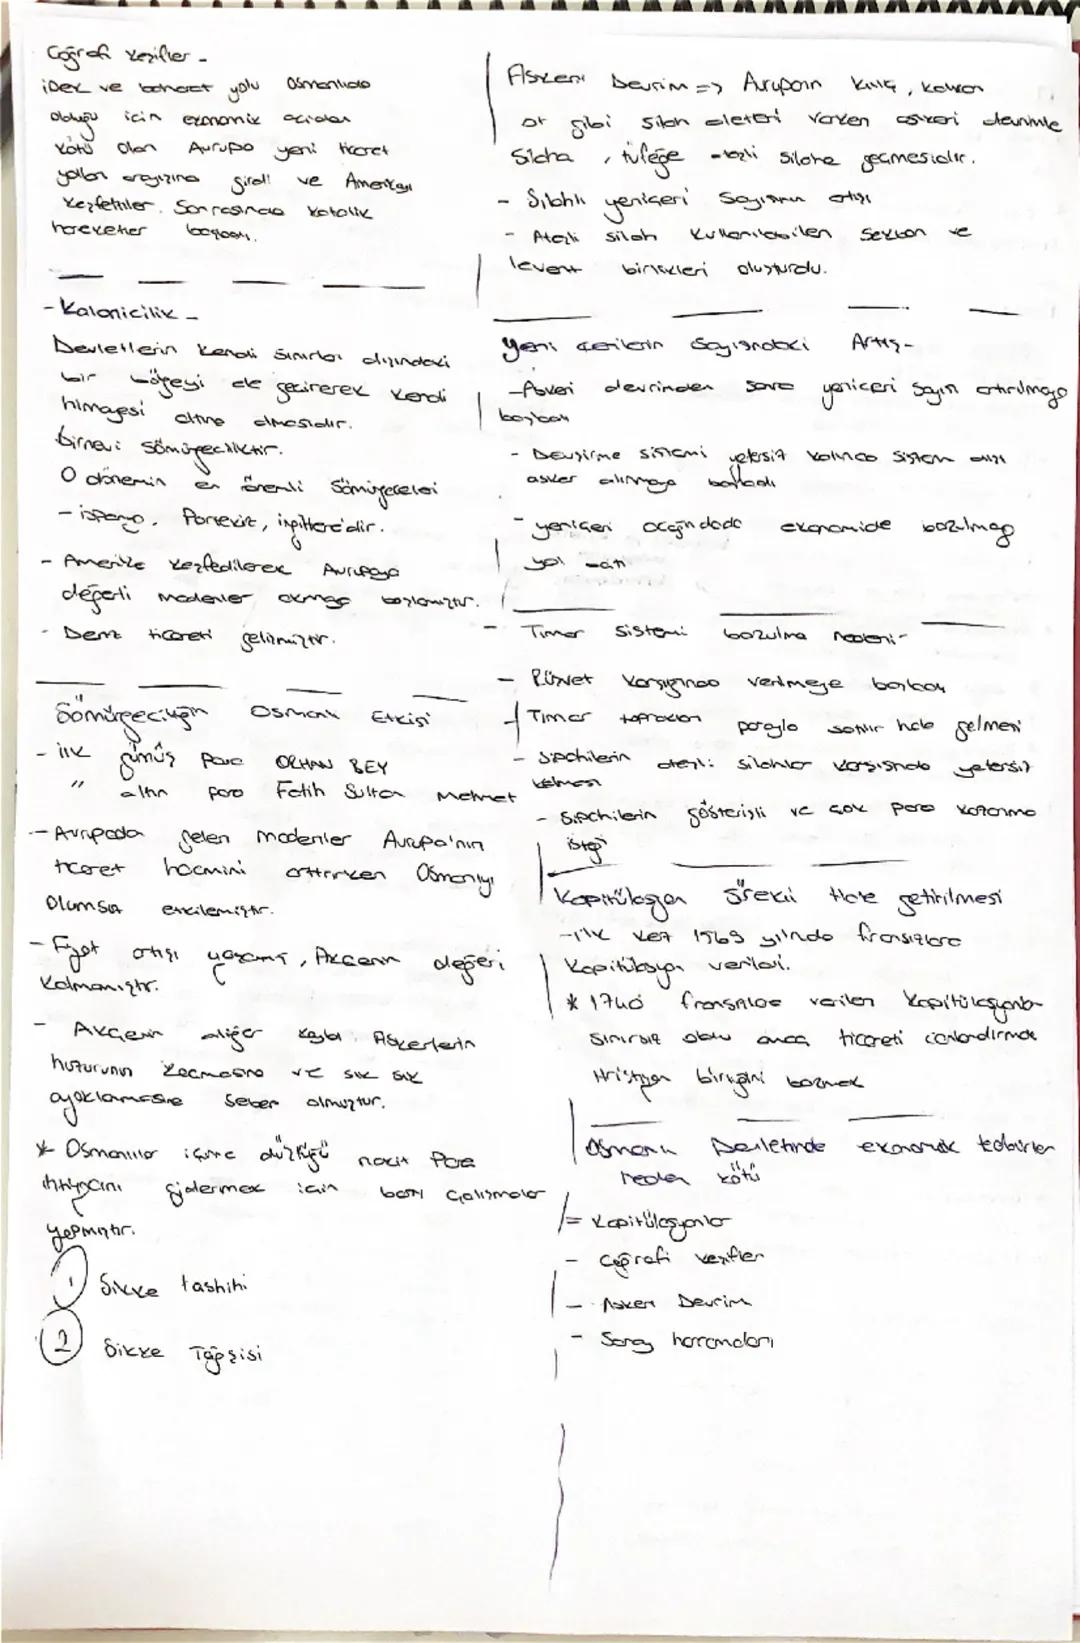 Coğrafi Keşifler -
İpek ve baharat yolu Osmanlıda
olduğu için ekonomik açıdan
kötü olan Avrupa yeni ticaret
yolları arayışına girdi ve Amerikayı
keşfettiler. Sonrasında Katolik
hareketler başladı.
- Kolonicilik -
Devletlerin kendi sınırları dışındaki
bir bölgeyi ele geçirerek kendi
himayesi altına almasıdır.
birnevi sömürgeciliktir.
O dönemin en önemli sömürgecileri
- ispanya, Portekiz, ingiltere'dir.
- Amerika keşfedilerek Avrupaya
değerli madenler akmaya başlamıştır.
- Deniz ticareti gelişmiştir.
Sömürgeciliğin Osmanlı Etkisi
- ilk gümüş para ORHAN BEY
" altın para Fatih Sultan Mehmet
- Avrupada gelen madenler Avrupa'nın
ticaret hacmini arttırırken Osmanlıyı
Olumsuz etkilemiştir.
- Fiyat artışı yaşandı, Akçenin değeri
kalmamıştır.
- Akçenin değer kaybı Askerlerin
huzurunun kaçmasına ve sık sık
ayaklanmasına sebep olmuştur.
* Osmanlılar içine düştüğü nakit para
ihtiyacını gidermek için bazı çalışmalar
yapmıştır.
1 Sikke tashihi
2 Sikke Tağşişi
Askeri Devrim => Avrupanın kılıç, kalkan
ok gibi silah aletleri varken askeri devrimle
silaha, tüfeğe ateşli silaha geçmesidir.
- Silahlı yeniçeri sayısının artışı
- Ateşli silah kullanılabilen sekban ve
levent birlikleri oluşturdu.
Yeniçerilerin Sayısındaki Artış -
- Askeri devrimden sonra yeniçeri sayısı artırılmaya
başladı
- Devşirme sistemi yetersiz kalınca sistem dışı
asker alınmaya başladı
- yeniçeri ocağındada ekonomide bozulmaya
yol açtı
- Tımar sistemi bozulma nedeni -
- Rüşvet karşığında verilmeye başladı
- Tımar toprakları parayla satılır hale gelmesi
- Sipahilerin ateşli silahlar karşısında yetersiz
kalması
- Sipahilerin gösterişli ve çok para kazanma
isteği
Kapitülasyon sürekli hale getirilmesi
- ilk kez 1569 yılında fransızlara
kapitülasyon verildi.
* 1740 fransızlara verilen kapitülasyonlar
sınırsız oldu amaç ticareti canlandırmak
Hristiyan birliğini bozmak
Osmanlı Devletinde ekonomik tedbirler
neden kötü
- Kapitülasyonlar
- Coğrafi keşifler
- Askeri Devrim
- Saray harcamaları